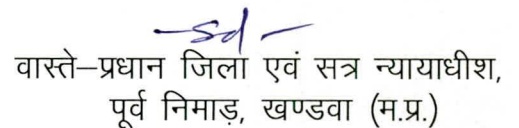 -sd-
वास्ते–प्रधान जिला एवं सत्र न्यायाधीश,
पूर्व निमाड़, खण्डवा (म.प्र.)